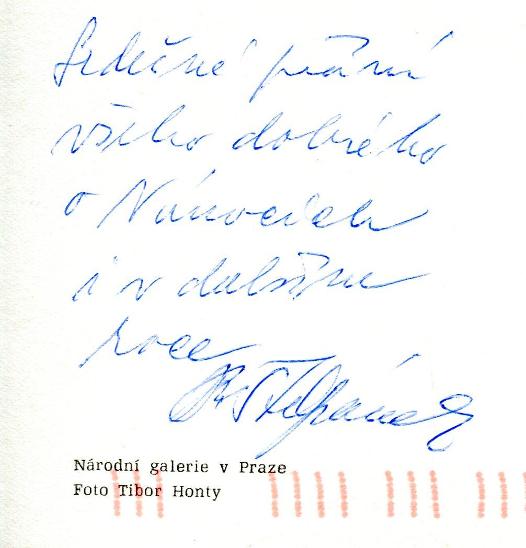 Srdečné přání
všeho dobrého
o Vánocích
i v dalším
roce
Štěpánek
Národní galerie v Praze
Foto Tibor Honty